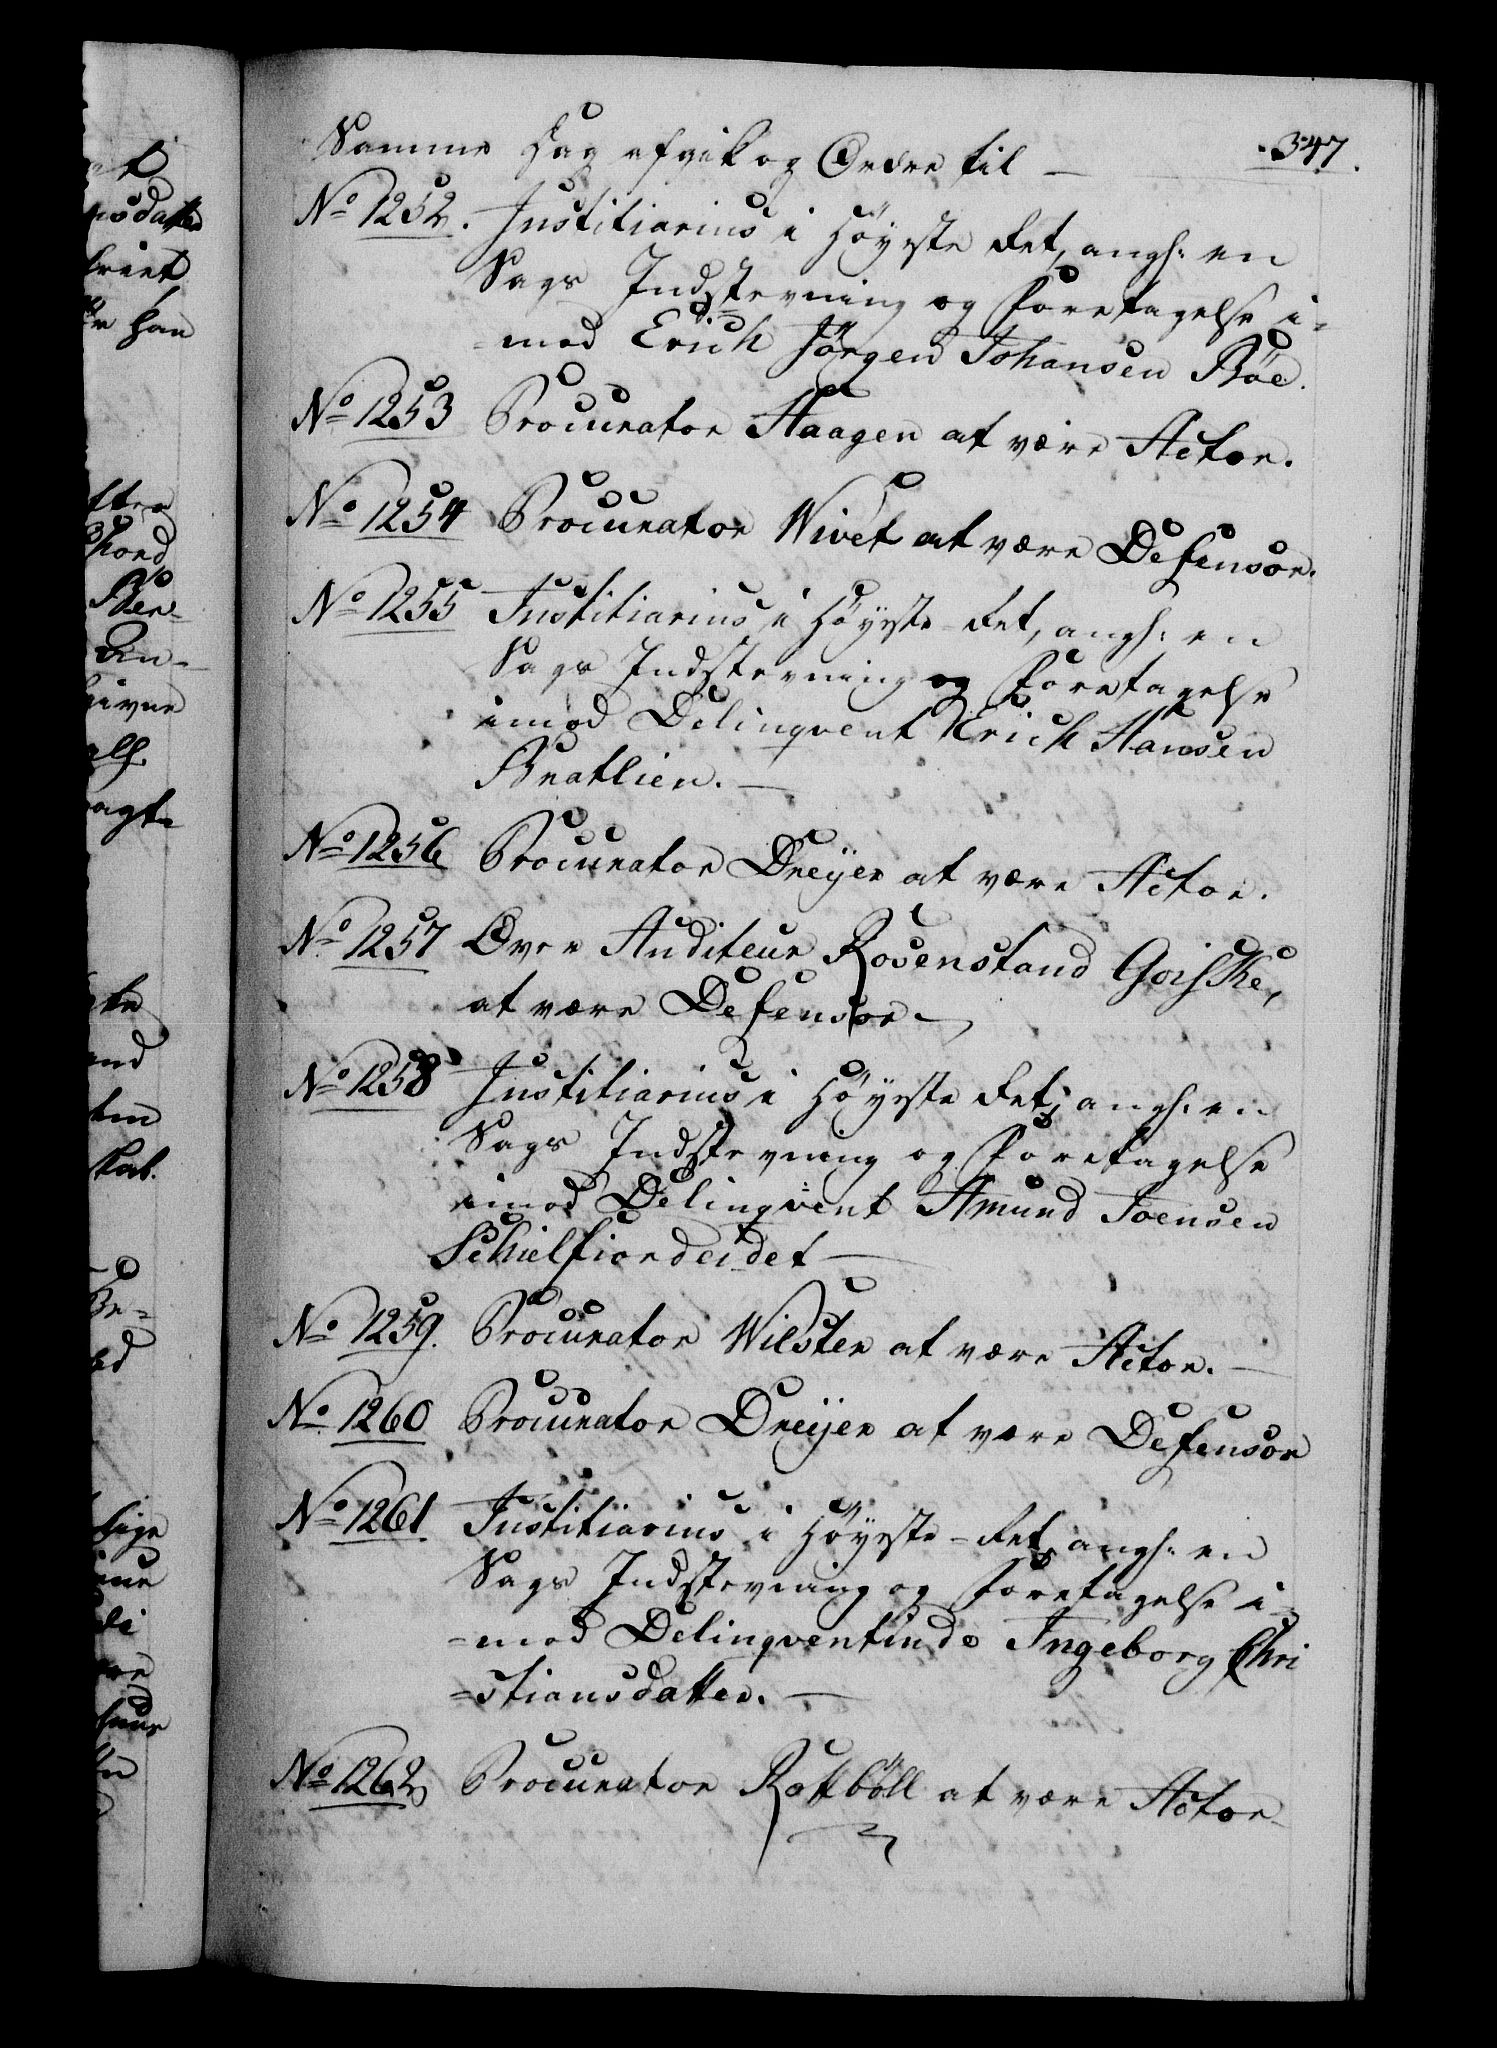 347.
Samme Dag afgik og Ordre til
No 1252. Justitiarius i Høyeste Ret, angl: en
Sags Indstevning og Foretagelse i=
=mod Erich Jörgen Johansen Böe.
No 1253 Procurator Haagen at være Actor.
No 1254 Procurator Wivet at være Defensor.
No 1255 Justitiarius i Høyeste-Ret, angl: en
Sags Indstevning og Foretagelse
imod Delinqvent Erich Hansen
Bratlien.
No 1256 Procurator Dreijer at være Actor.
No 1257 Over Auditeur Rosenstand Goiske,
at være Defensor
No 1258 Justitiarius i Høyeste Ret, angl: en
Sags Indstevning og Foretagelse
imod Delinqvent Amund Joensen
Schielfiordeidet
No 1259. Procurator Wilster at være Actor.
No 1260 Procurator Dreijer at være Defensor
No 1261 Justitiarius i Høyeste-Ret, angl: en
Sags Indstevning og Foretagelse i=
=mod Delinqventinde Ingeborg Chri
=stiansdatter.
No 1262 Procurator Rottböll at være Actor